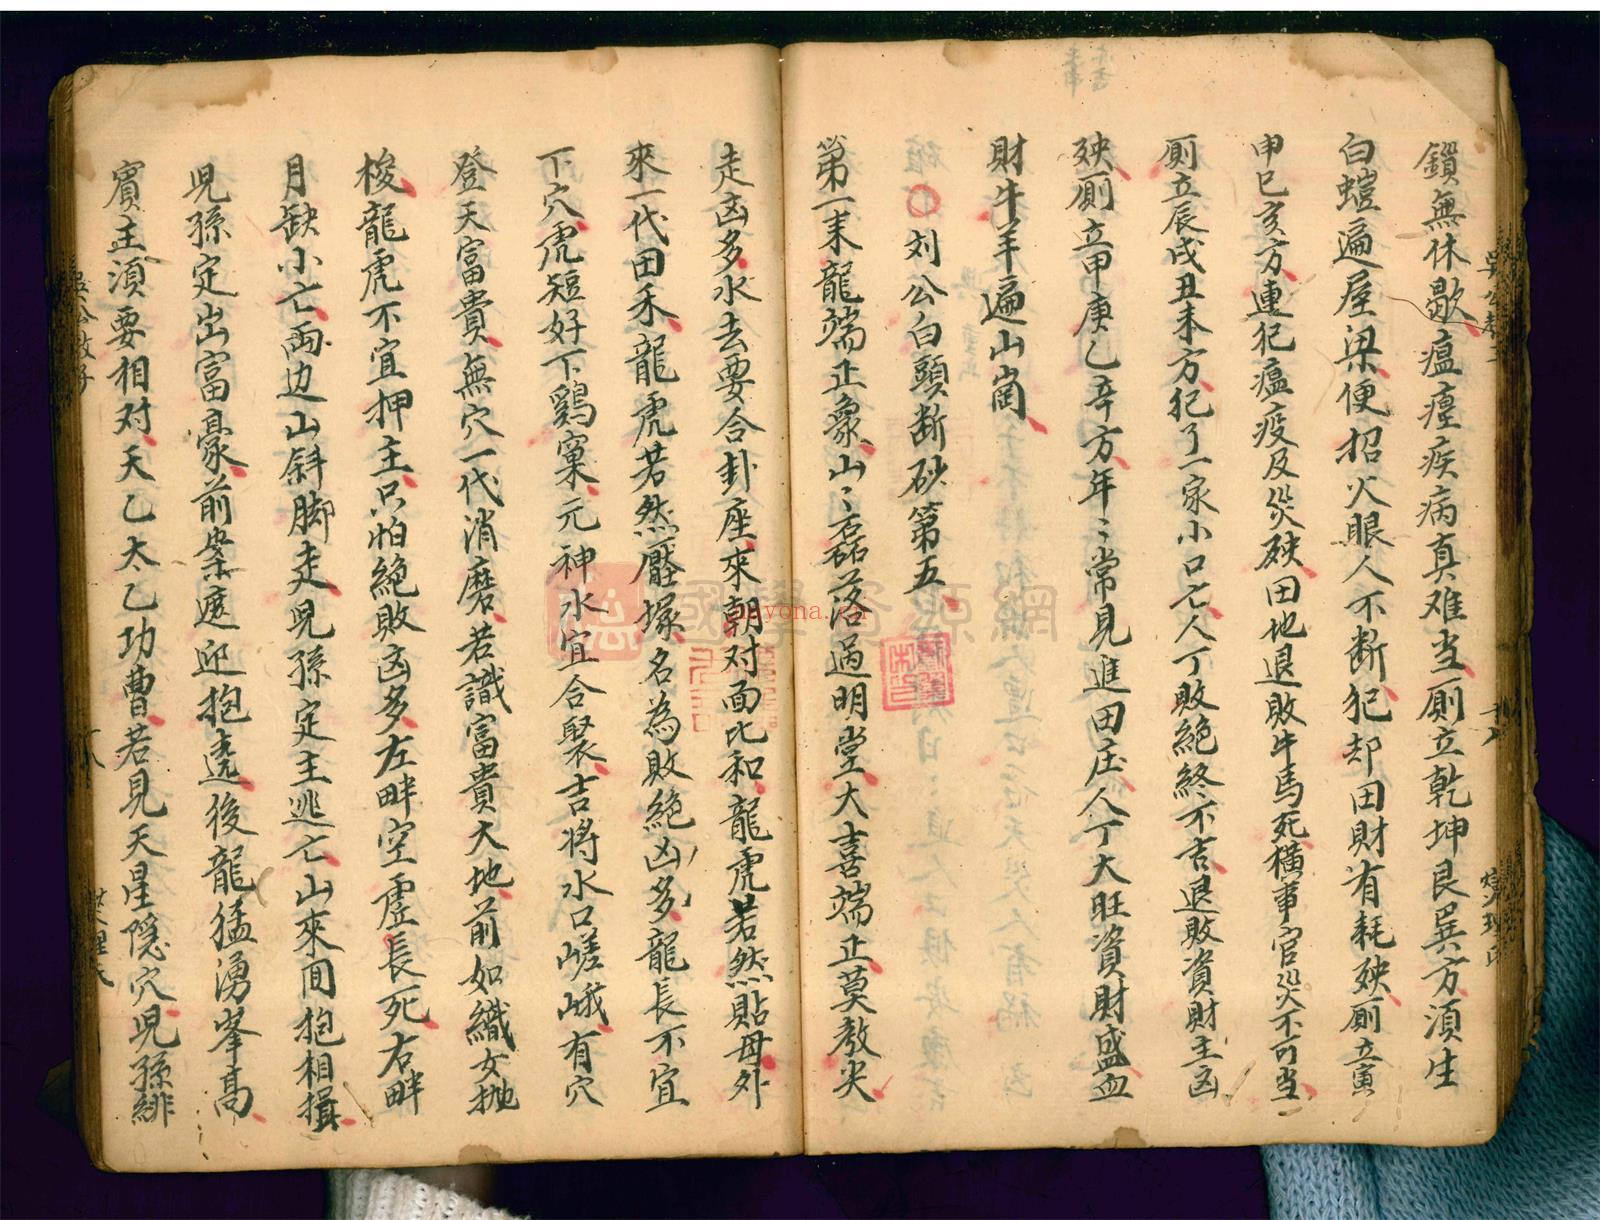 鎖無休歇瘟瘟疾病真难当厠立乾坤艮巽方湏生
白螘遍屋梁便招火眼人不断犯却田財有耗殃厠立寅
申巳亥方連犯瘟疫及災殃田地退敗牛馬死横事官災不可当
厠立辰戌丑未方犯了一家小口亡人丁敗絶終不吉退敗資財主凶
殃厠立甲庚乙辛方年〻常見進田庄人丁大旺資財盛血
財牛羊遍山崗
○刘公白頭断砂第五
第一来龍端正象山〻磊落過明堂大喜端正莫教尖
走凶多水去要合卦座來朝对面比和龍虎若然貼母外
來一代田禾龍虎若然壓塚名為敗絶凶多龍長不宜
下穴虎短好下鷄窠元神水宜合聚吉将水口嵯峨有穴
登天富貴無穴一代消磨若識富貴大地前如織女抛
梭龍虎不宜押主只怕絶敗凶多左畔空虚長死右畔
月缺小亡両边山斜脚走児孫定主逃亡山來囬抱相揖
児孫定出富豪前案遮迎抱遶後龍猛湧峯高
賓主湏要相对天乙太乙功曹若見天星隠穴児孫緋
國學資源網
nayona.cn